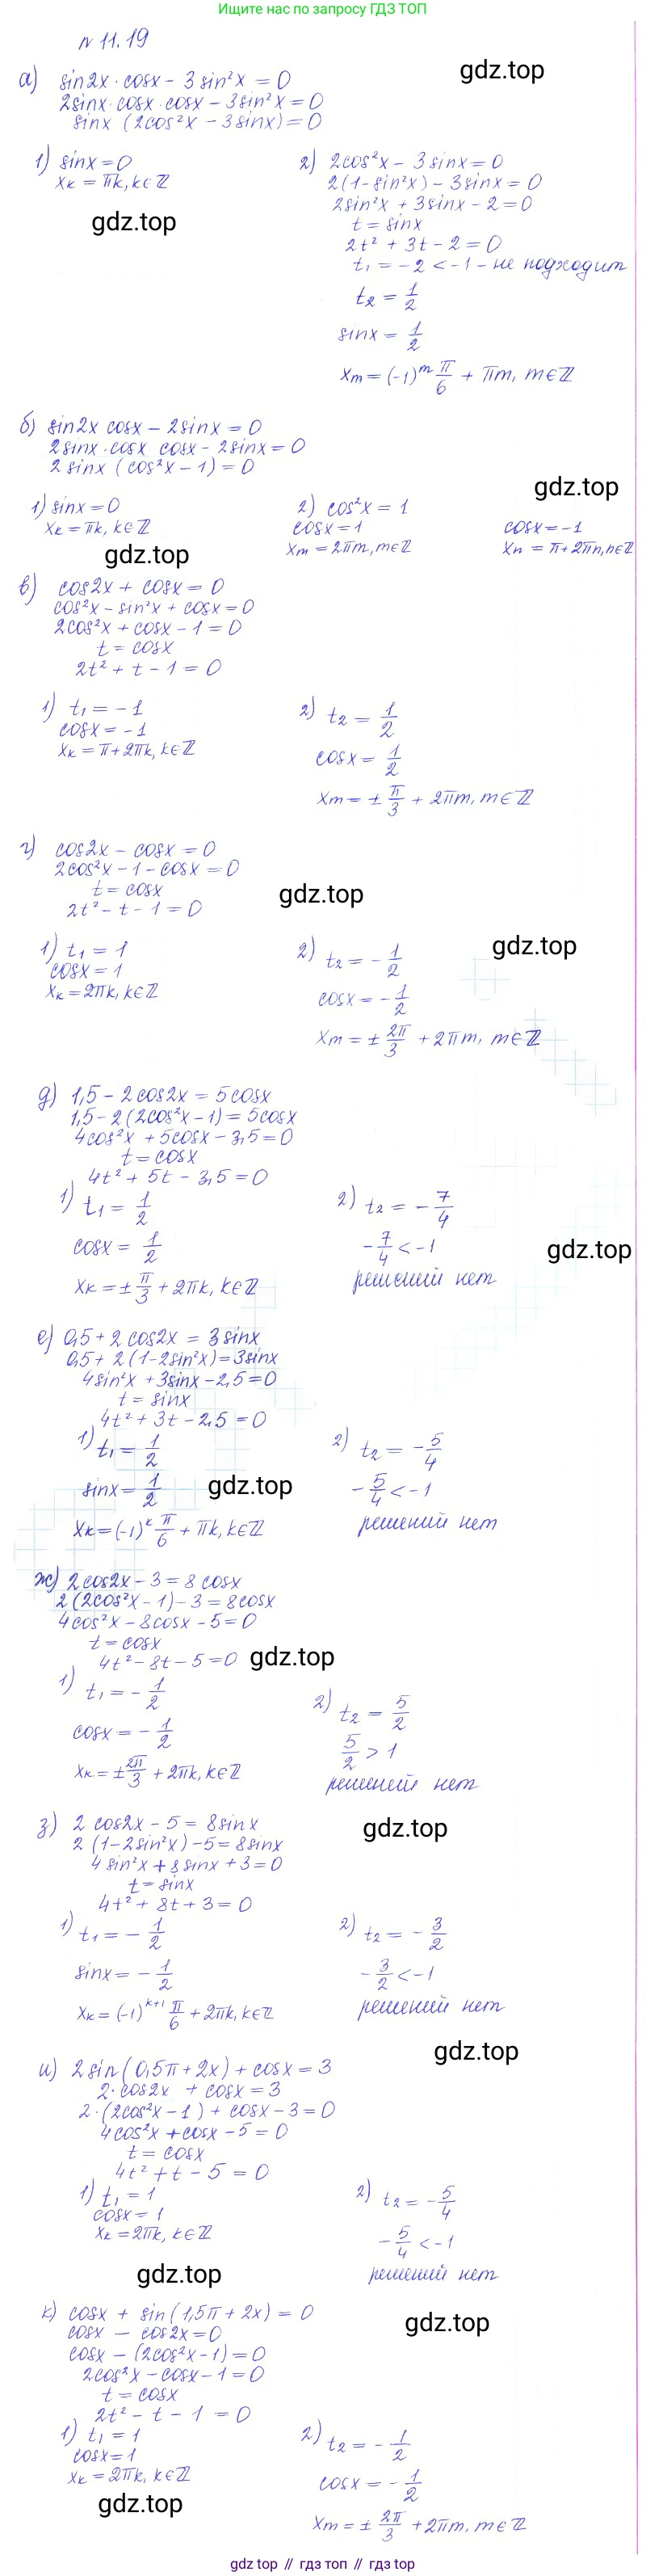 Ищите нас по запросу ГДЗ ТОП
N 11.19
gdz.top
а) sin2x · cosx - 3 sin²x = 0
2sinx · cosx · cosx - 3sin²x = 0
sinx (2cos²x - 3sinx) = 0
1) sinx = 0
xₖ = πk, k∈ℤ
gdz.top
2) 2cos²x - 3sinx = 0
2(1-sin²x) - 3sinx = 0
2sin²x + 3sinx - 2 = 0
t = sinx
2t² + 3t - 2 = 0
t₁ = -2 < -1 - не подходит
t₂ = 1/2
sinx = 1/2
xₘ = (-1)ᵐ π/6 + πm, m∈ℤ
б) sin2x cosx - 2sinx = 0
2sinx · cosx cosx - 2sinx = 0
2 sinx (cos²x - 1) = 0
gdz.top
1) sinx = 0
xₖ = πk, k∈ℤ
gdz.top
2) cos²x = 1
cosx = 1
xₘ = 2πm, m∈ℤ
cosx = -1
xₙ = π+2πn, n∈ℤ
в) cos2x + cosx = 0
cos²x - sin²x + cosx = 0
2cos²x + cosx - 1 = 0
t = cosx
2t² + t - 1 = 0
1) t₁ = -1
cosx = -1
xₖ = π+2πk, k∈ℤ
2) t₂ = 1/2
cosx = 1/2
xₘ = ± π/3 + 2πm, m∈ℤ
г) cos2x - cosx = 0
2cos²x - 1 - cosx = 0
t = cosx
2t² - t - 1 = 0
gdz.top
1) t₁ = 1
cosx = 1
xₖ = 2πk, k∈ℤ
gdz.top
2) t₂ = - 1/2
cosx = - 1/2
xₘ = ± 2π/3 + 2πm, m∈ℤ
д) 1,5 - 2cos2x = 5cosx
1,5 - 2(2cos²x - 1) = 5cosx
4cos²x + 5cosx - 3,5 = 0
t = cosx
4t² + 5t - 3,5 = 0
1) t₁ = 1/2
cosx = 1/2
xₖ = ± π/3 + 2πk, k∈ℤ
2) t₂ = - 7/4
- 7/4 < -1
решений нет
gdz.top
е) 0,5 + 2 cos2x = 3sinx
0,5 + 2(1-2sin²x) = 3sinx
4sin²x + 3sinx - 2,5 = 0
t = sinx
4t² + 3t - 2,5 = 0
1) t₁ = 1/2
sinx = 1/2
xₖ = (-1)ᵏ π/6 + πk, k∈ℤ
gdz.top
2) t₂ = - 5/4
- 5/4 < -1
решений нет
ж) 2cos2x - 3 = 8cosx
2(2cos²x - 1) - 3 = 8cosx
4cos²x - 8cosx - 5 = 0
t = cosx
4t² - 8t - 5 = 0
gdz.top
1) t₁ = - 1/2
cosx = - 1/2
xₖ = ± 2π/3 + 2πk, k∈ℤ
2) t₂ = 5/2
5/2 > 1
решений нет
з) 2 cos2x - 5 = 8sinx
gdz.top
2(1-2sin²x) - 5 = 8sinx
4 sin²x + 8 sinx + 3 = 0
t = sinx
4t² + 8t + 3 = 0
1) t₁ = - 1/2
sinx = - 1/2
xₖ = (-1)ᵏ⁺¹ π/6 + 2πk, k∈ℤ
2) t₂ = - 3/2
- 3/2 < -1
решений нет
gdz.top
и) 2sin(0,5π + 2x) + cosx = 3
2·cos2x + cosx = 3
2·(2cos²x - 1) + cosx - 3 = 0
4cos²x + cosx - 5 = 0
t = cosx
4t² + t - 5 = 0
1) t₁ = 1
cosx = 1
xₖ = 2πk, k∈ℤ
gdz.top
2) t₂ = - 5/4
- 5/4 < -1
решений нет
к) cosx + sin(1,5π + 2x) = 0
gdz.top
cosx - cos2x = 0
cosx - (2cos²x - 1) = 0
2cos²x - cosx - 1 = 0
t = cosx
2t² - t - 1 = 0
1) t₁ = 1
cosx = 1
xₖ = 2πk, k∈ℤ
gdz.top
2) t₂ = - 1/2
cosx = - 1/2
xₘ = ± 2π/3 + 2πm, m∈ℤ
gdz top // гдз топ // gdz top